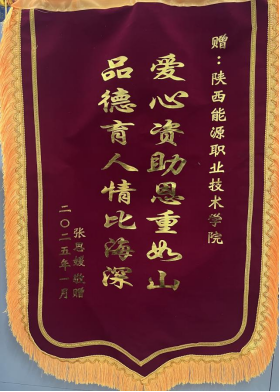 赠：陕西能源职业技术学院
爱心资助恩重如山
品德育人情比海深
张思媛 敬赠
二〇二五年一月